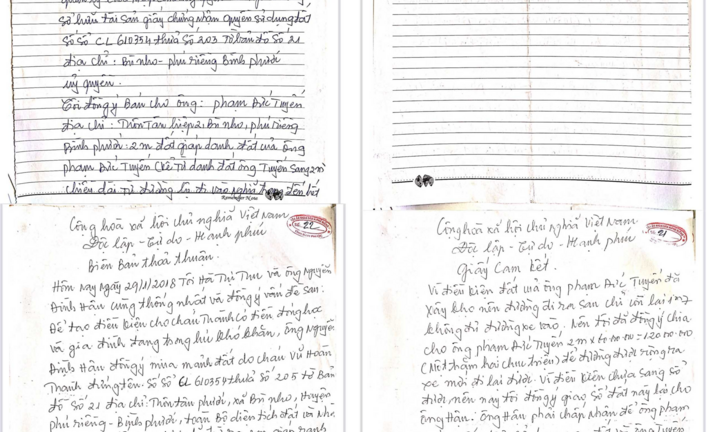 sở hữu tài sản giấy chứng nhận quyền sử dụng đất
Số Sổ CL 610354 thửa Số 203 Tờ bản đồ Số 21
địa chỉ : Bù nho - phú riềng Bình phước
uỷ quyền.
Tôi đồng ý Bán cho ông : phạm Đức Tuyến
địa chỉ : Thôn Tân hiệp 2, Bù nho, phú riềng
Bình phước : 2 m đất giáp danh đất của ông
phạm Đức Tuyến (kể Từ danh đất ông Tuyến Sang 2m
chiều dài Từ đường đi vào nghĩa đến hết
Cộng hoà xã hội chủ nghĩa Việt Nam
Độc lập - Tự do - Hạnh phúc
22
Biên Bản thoả thuận.
Hôm nay ngày 29/1/2018 Tôi Hà Thị Thu và ông Nguyễn
Đình Hân cùng thống nhất và đồng ý vấn đề sau:
Để tạo điều kiện cho cháu Thanh có tiền đóng học
và gia đình đang trong lúc khó khăn, ông Nguyễn
Đình Hân đồng ý mua mảnh đất do cháu Vũ Hoàn
Thanh đứng tên: Số Sổ CL 610354 thửa Số 205 tờ Bản
đồ Số 21 địa chỉ: Thôn tân phước, xã Bù nho, Huyện
phú riềng - Bình phước, toàn Bộ diện tích đất và nhà
Cộng hoà xã hội chủ nghĩa Việt Nam
Độc lập - Tự do - Hạnh phúc
21
Giấy Cam kết.
Vì điều kiện đất mà ông phạm Đức Tuyến đã
xây kho nên đường đi ra sau chỉ còn lại 1m7
không đi đường xe vào. Nên tôi đã đồng ý chia
cho ông phạm Đức Tuyến 2m x 60.00.00 = 120.00.00
(Một trăm hai chục triệu) để đường được rộng ra
xe mới đi lại được. Vì điều kiện chưa sang sổ
được nên nay tôi đồng ý giao Sổ đất này lại cho
ông Hân. ông Hân phải chấp nhận để ông phạm